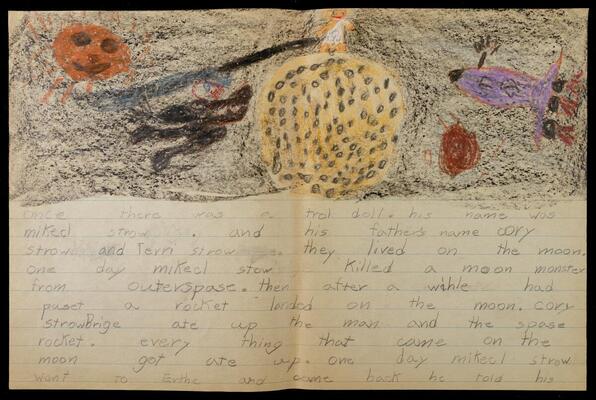 once there was a trol doll. his name was
mikecl strow . and his father's name cory
strow and Terri strow . they lived on the moon.
one day mikecl stow killed a moon monster
from outerspase. then after a wihle had
puset a rocket landed on the moon. cory
strowBrige ate up the man and the spase
rocket. every thing that came on the
moon got ate up. one day mikecl strow
want to Erthe and came back he told his